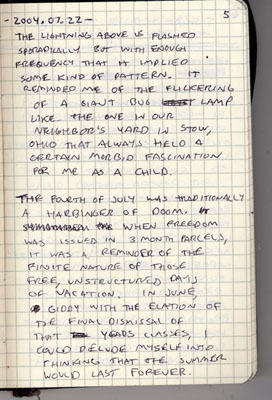 5
-2004.07.22-
THE LIGHTNING ABOVE US FLASHED
SPORADICALLY BUT WITH ENOUGH
FREQUENCY THAT IT IMPLIED
SOME KIND OF PATTERN. IT
REMINDED ME OF THE FLICKERING
OF A GIANT BUG LAMP
LIKE THE ONE IN OUR
NEIGHBOR'S YARD IN STOW,
OHIO THAT ALWAYS HELD A
CERTAIN MORBID FASCINATION
FOR ME AS A CHILD.
THE FOURTH OF JULY WAS TRADITIONALLY
A HARBINGER OF DOOM.
WHEN FREEDOM
WAS ISSUED IN 3 MONTH PARCELS,
IT WAS A REMINDER OF THE
FINITE NATURE OF THOSE
FREE, UNSTRUCTURED DAYS
OF VACATION. IN JUNE,
GIDDY WITH THE ELATION OF
THE FINAL DISMISSAL OF
THAT YEARS CLASSES, I
COULD DELUDE MYSELF INTO
THINKING THAT THE SUMMER
WOULD LAST FOREVER.